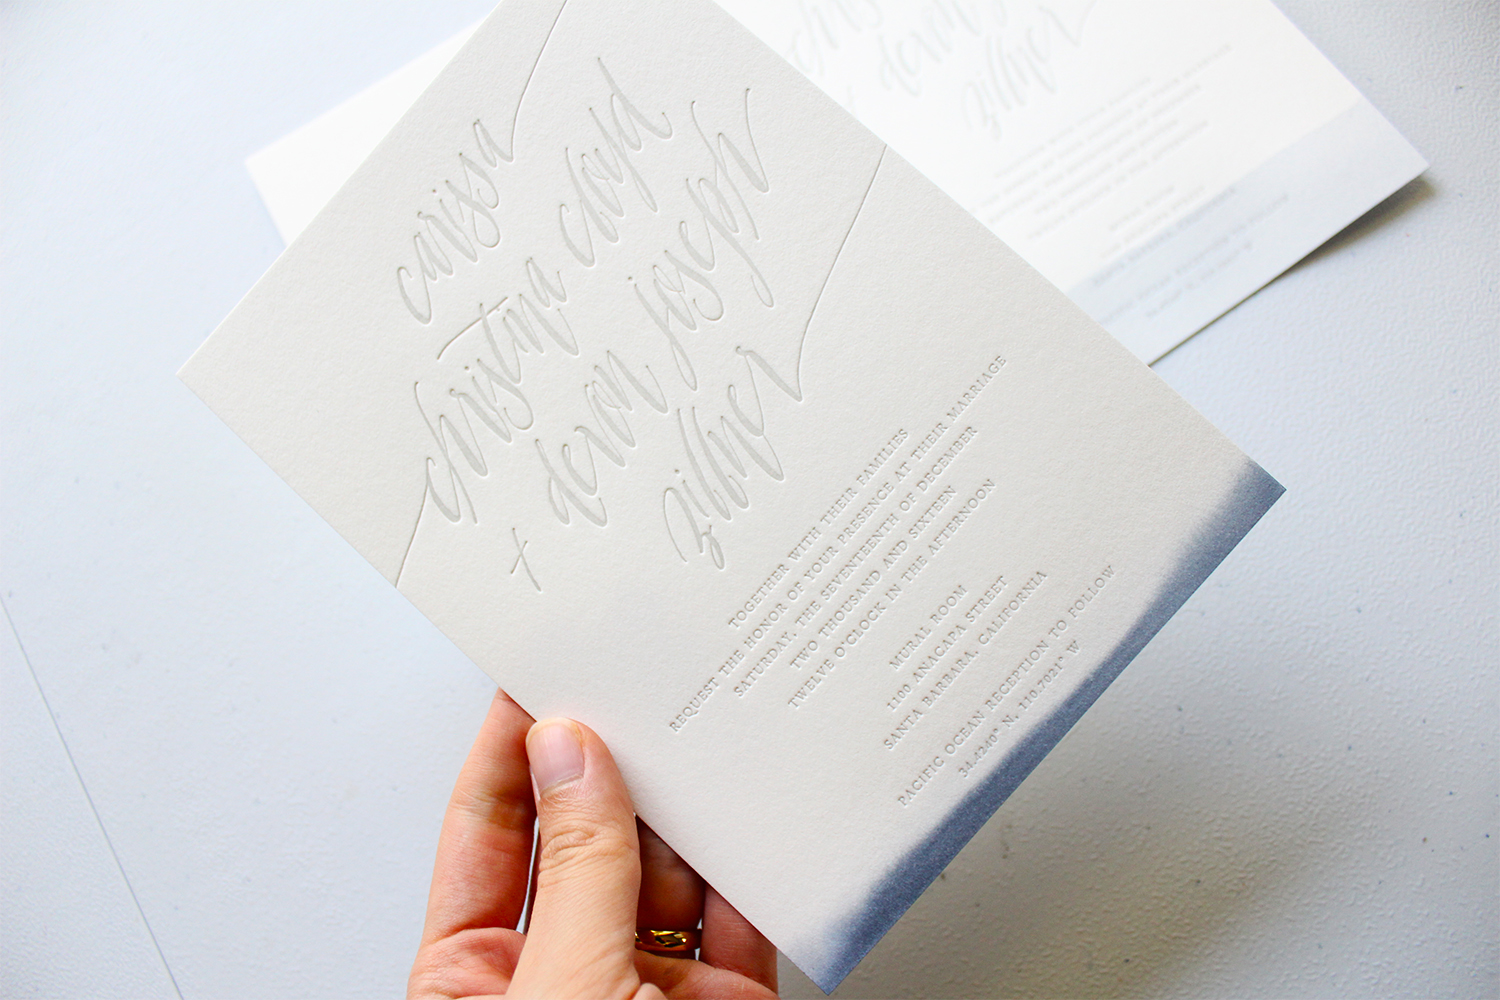 carissa
christina cloyd
+ devon joseph
zillner
TOGETHER WITH THEIR FAMILIES
REQUEST THE HONOR OF YOUR PRESENCE AT THEIR MARRIAGE
SATURDAY, THE SEVENTEENTH OF DECEMBER
TWO THOUSAND AND SIXTEEN
TWELVE O'CLOCK IN THE AFTERNOON
MURAL ROOM
1100 ANACAPA STREET
SANTA BARBARA, CALIFORNIA
PACIFIC OCEAN RECEPTION TO FOLLOW
34.4240° N, 119.7021° W
devon
zillner